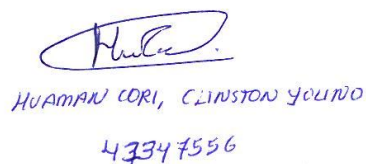 HUAMAN CORI, CLINSTON YOUNO
43347556